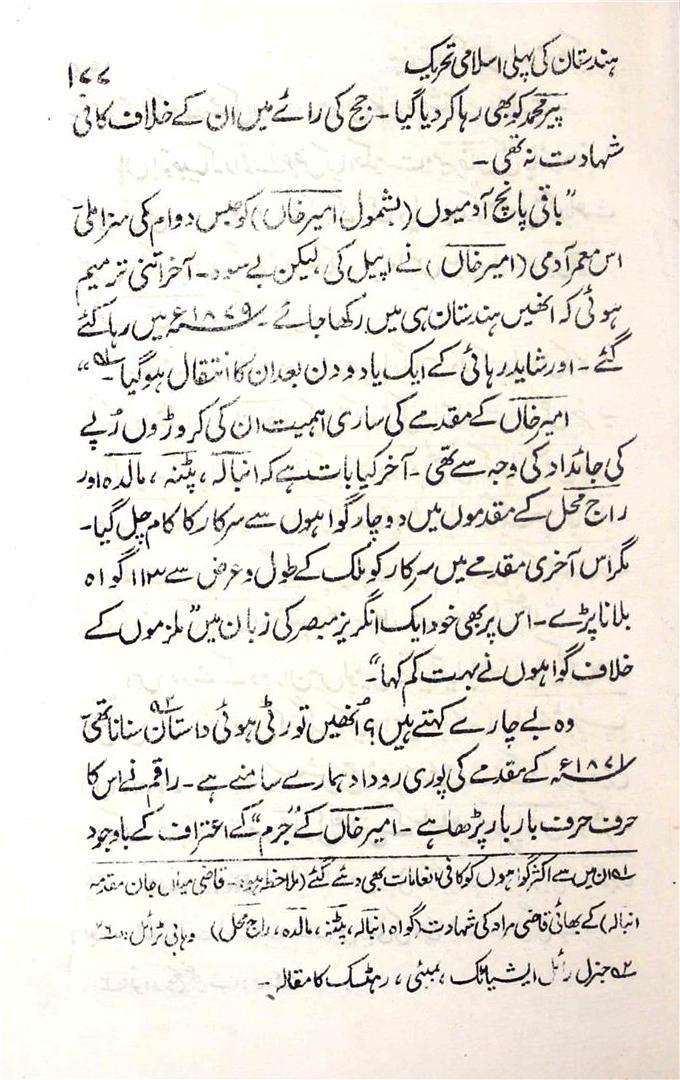 ہندستان کی پہلی اسلامی تحریک ۱۷۷
پیر محمد کو بھی رہا کر دیا گیا ۔ جج کی رائے میں ان کے خلاف کافی
شہادت نہ تھی ۔
”باقی پانچ آدمیوں (بشمول امیر خاں) کو حبس دوام کی سزا ملی
اس معمر آدمی (امیر خاں) نے اپیل کی ، لیکن بے سود ۔ آخر اتنی ترمیم
ہوئی کہ انھیں ہندستان ہی میں رکھا جائے ۔ ۱۸۷۹ء میں رہا کئے
گئے ۔ اور شاید رہائی کے ایک یا دو دن بعد ان کا انتقال ہو گیا ۔“
امیر خاں کے مقدمے کی ساری اہمیت ان کی کروڑوں رُپے
کی جائداد کی وجہ سے تھی ۔ آخر کیا بات ہے کہ انبالہ ، پٹنہ ، مالدہ اور
راج محل کے مقدموں میں دو چار گواہوں سے سرکار کا کام چل گیا ۔
مگر اس آخری مقدمے میں سرکار کو ملک کے طول و عرض سے ۱۱۳ گواہ
بلانا پڑے ۔ اس پر بھی خود ایک انگریز مبصر کی زبان میں ”ملزموں کے
خلاف گواہوں نے بہت کم کہا“ ۔
وہ بے چارے کہتے ہیں ؟ اُنھیں تو رٹی ہوئی داستان ۹۲ سنانا تھی
۱۸۷۱ء کے مقدمے کی پوری روداد ہمارے سامنے ہے ۔ راقم نے اس کا
حرف حرف بار بار پڑھا ہے ۔ امیر خاں کے ”جرم“ کے اعتراف کے باوجود
ان میں سے اکثر گواہوں کو کافی انعامات بھی دئے گئے (ملاحظہ ہو ۔ قاضی میاں جان مقدمہ
انبالہ) کے بھائی قاضی مراد کی شہادت (گواہ انبالہ ، پٹنہ ، مالدہ ، راج محل) وہابی ٹرائل :
جنرل رائل ایشیاٹک ، بمبئی ، رہٹسک کا مقالہ ۔